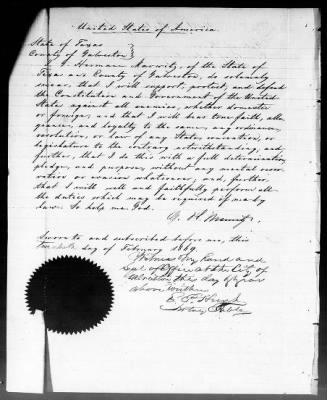 United States of America
State of Texas
County of Galveston
I, Herman Marwitz, of the State of
Texas and County of Galveston, do solemnly
swear, that I will support, protect, and defend
the Constitution and Government of the United
States against all enemies, whether domestic
or foreign; and that I will bear true faith, alle-
giance, and loyalty to the same, any ordinance,
resolution, or law of any State convention, or
legislature to the contrary notwithstanding, and
further, that I do this with a full determination,
pledge, and purpose, without any mental reser-
vation or evasion whatever; and, further,
that I will well and faithfully perform all
the duties which may be required of me by
law. So help me God.
H. Marwitz
Sworn to and subscribed before me, this
day of February 1869.
Witness my hand and
Seal of Office at the City of
Galveston the day & year
above written
Notary Public